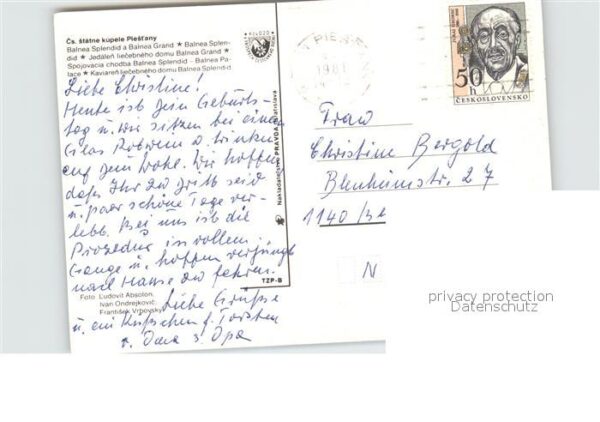 Čs. štátne kúpele Piešťany
Balnea Splendid a Balnea Grand ★ Balnea Splen-
did ★ Jedáleň liečebného domu Balnea Grand ★
Spojovacia chodba Balnea Splendid - Balnea Pa-
lace ★ Kaviareň liečebného domu Balnea Splendid
Liebe Christine!
Heute ist Dein Geburts-
tag u. wir sitzen bei einem
Glas Rotwein u. trinken
auf Dein Wohl. Wir hoffen
daß Ihr zu dritt seid
u. paar schöne Tage ver-
lebt. Bei uns ist die
Prozedur in vollem
Gange u. hoffen verjüngt
nach Hause zu fahren.
Liebe Grüße
u. ein Küßchen f. Torsten
v. Oma u. Opa
Foto: Ľudovít Absolon,
Ivan Ondrejkovič,
František Vrbovský
Nakladateľstvo PRAVDA Bratislava
TZP-B
1981
50
h
ČESKOSLOVENSKO
Frau
Christine Bergold
1140
N
privacy protection
Datenschutz